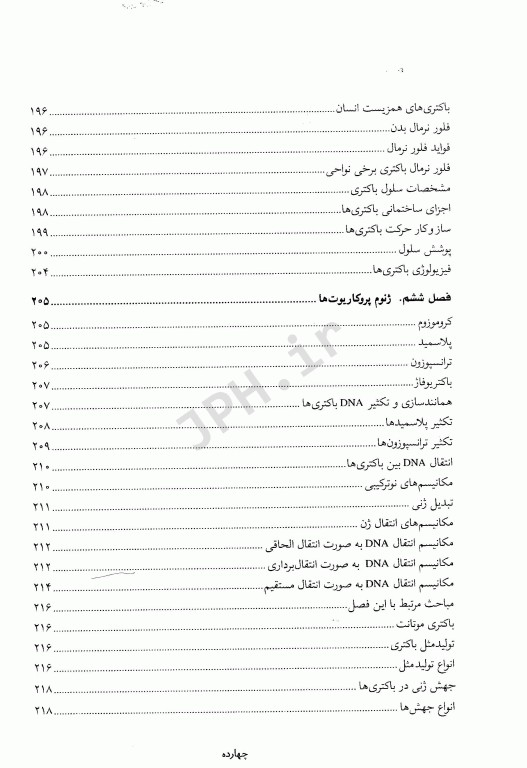 باکتری‌های همزیست انسان ۱۹۶
فلور نرمال بدن ۱۹۶
فواید فلور نرمال ۱۹۶
فلور نرمال باکتری برخی نواحی ۱۹۷
مشخصات سلول باکتری ۱۹۸
اجزای ساختمانی باکتری‌ها ۱۹۸
ساز و کار حرکت باکتری‌ها ۱۹۹
پوشش سلول ۲۰۰
فیزیولوژی باکتری‌ها ۲۰۴
فصل ششم. ژنوم پروکاریوت‌ها ۲۰۵
کروموزوم ۲۰۵
پلاسمید ۲۰۵
ترانسپوزون ۲۰۶
باکتریوفاژ ۲۰۷
همانندسازی و تکثیر DNA باکتری‌ها ۲۰۷
تکثیر پلاسمیدها ۲۰۸
تکثیر ترانسپوزون‌ها ۲۰۹
انتقال DNA بین باکتری‌ها ۲۱۰
مکانیسم‌های نوترکیبی ۲۱۰
تبدیل ژنی ۲۱۱
مکانیسم‌های انتقال ژن ۲۱۱
مکانیسم انتقال DNA به صورت انتقال الحاقی ۲۱۲
مکانیسم انتقال DNA به صورت انتقال‌برداری ۲۱۲
مکانیسم انتقال DNA به صورت انتقال مستقیم ۲۱۴
مباحث مرتبط با این فصل ۲۱۶
باکتری موتانت ۲۱۶
تولیدمثل باکتری ۲۱۶
انواع تولیدمثل ۲۱۶
جهش ژنی در باکتری‌ها ۲۱۸
انواع جهش‌ها ۲۱۸
چهارده
JPH.ir